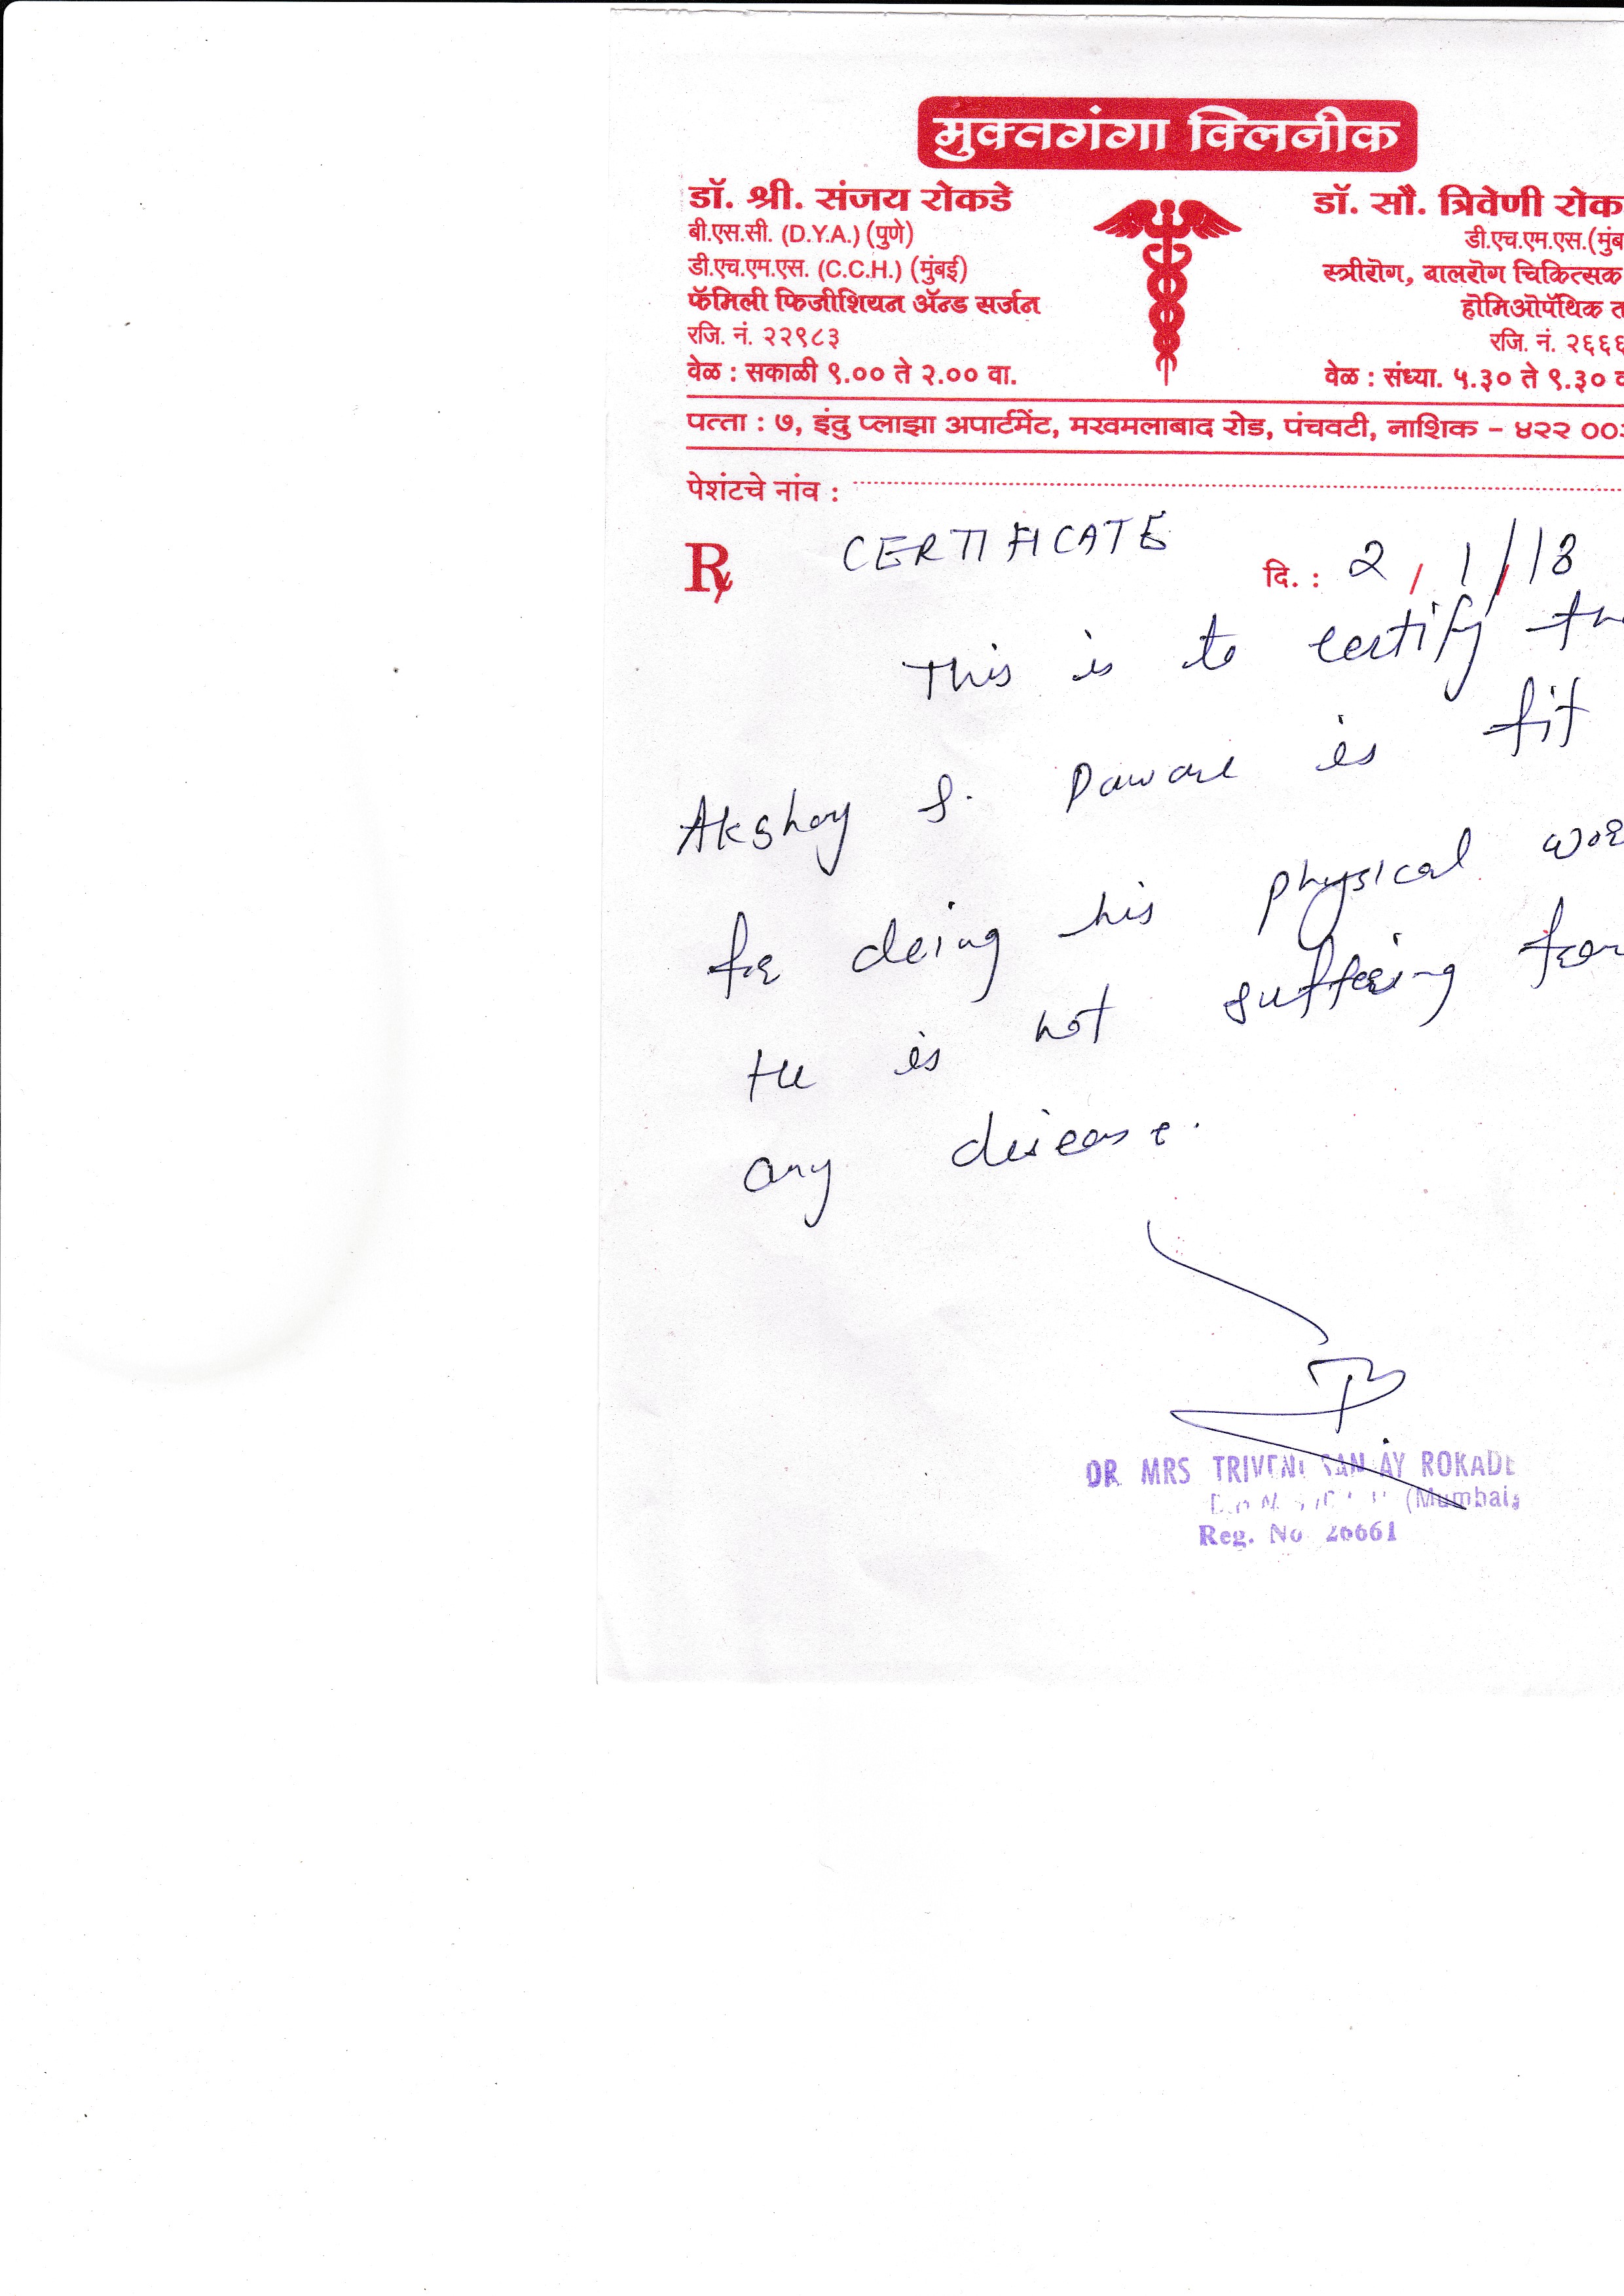 मुक्तगंगा क्लिनीक
डॉ. श्री. संजय रोकडे
बी.एस.सी. (D.Y.A.) (पुणे)
डी.एच.एम.एस. (C.C.H.) (मुंबई)
फॅमिली फिजीशियन अॅन्ड सर्जन
रजि. नं. २२९८३
वेळ : सकाळी ९.०० ते २.०० वा.
डॉ. सौ. त्रिवेणी रोक
डी.एच.एम.एस.(मुंब
स्त्रीरोग, बालरोग चिकित्सक
होमिओपॅथिक त
रजि. नं. २६६६
वेळ : संध्या. ५.३० ते ९.३० व
पत्ता : ७, इंदु प्लाझा अपार्टमेंट, मखमलाबाद रोड, पंचवटी, नाशिक - ४२२ ००३
पेशंटचे नांव :
CERTIFICATE
दि. : 2 / 1 / 18
This is to certify th
Akshay S. Paware is fit
for doing his physical wor
He is not suffering from
any disease.
DR MRS TRIVENI SANJAY ROKADE
(Mumbai)
Reg. No 26661